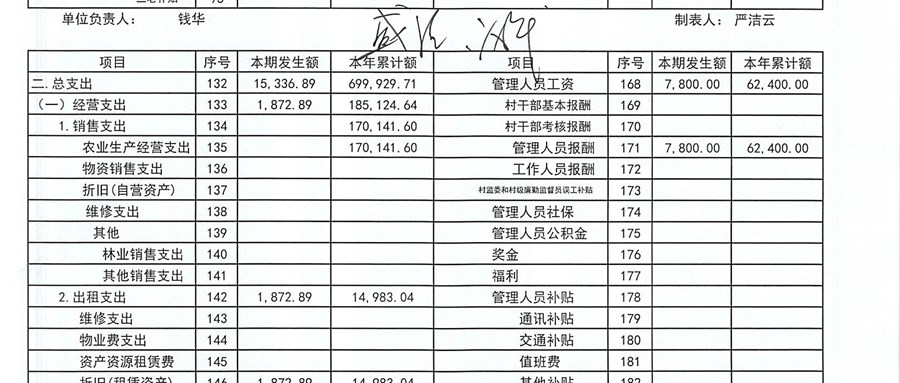 单位负责人： 钱华 制表人： 严洁云
项目 序号 本期发生额 本年累计额 项目 序号 本期发生额 本年累计额
二.总支出 132 15,336.89 699,929.71 管理人员工资 168 7,800.00 62,400.00
（一）经营支出 133 1,872.89 185,124.64 村干部基本报酬 169
1.销售支出 134 170,141.60 村干部考核报酬 170
农业生产经营支出 135 170,141.60 管理人员报酬 171 7,800.00 62,400.00
物资销售支出 136 工作人员报酬 172
折旧(自营资产) 137 村监委和村级廉勤监督员误工补贴 173
维修支出 138 管理人员社保 174
其他 139 管理人员公积金 175
林业销售支出 140 奖金 176
其他销售支出 141 福利 177
2.出租支出 142 1,872.89 14,983.04 管理人员补贴 178
维修支出 143 通讯补贴 179
物业费支出 144 交通补贴 180
资产资源租赁费 145 值班费 181
折旧(租赁资产) 146 1,872.89 14,983.04 其他补贴 182